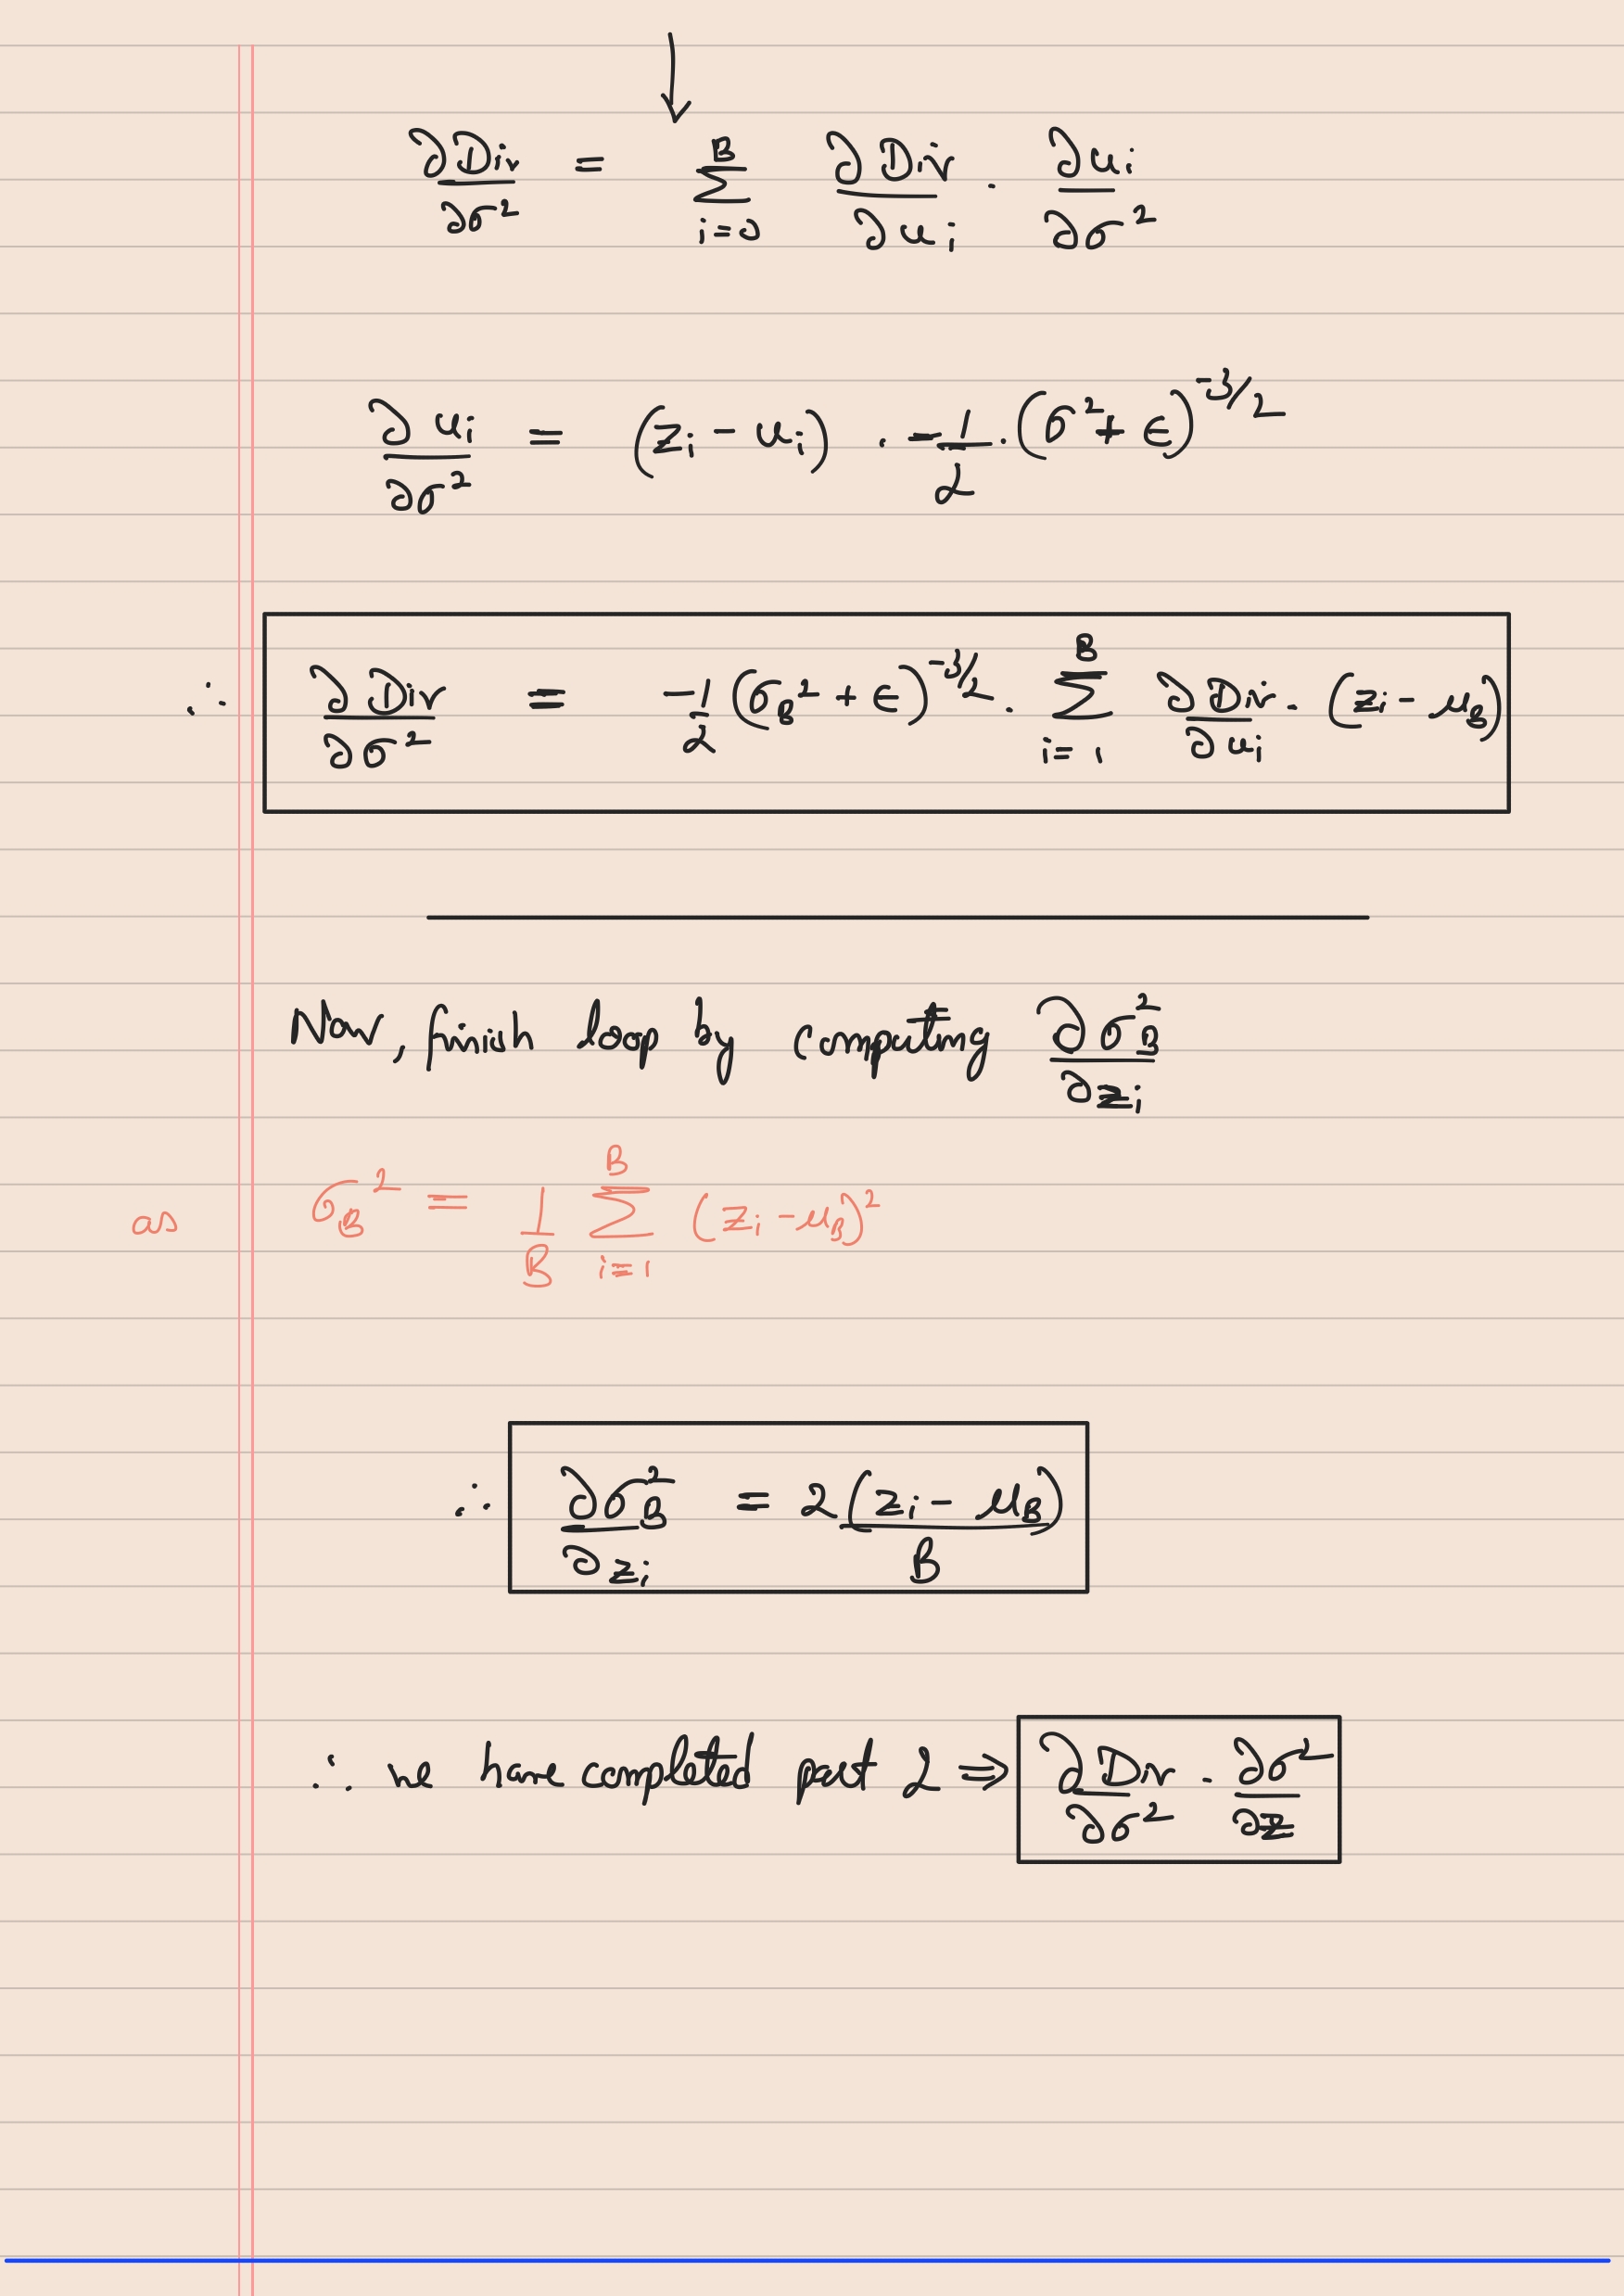 ↓
∂Div/∂σ² = Σ_{i=0}^{B} ∂Div/∂u_i · ∂u_i/∂σ²
∂u_i/∂σ² = (z_i − u_i) · −1/2 · (σ² + ϵ)^{−3/2}
∴ ∂Div/∂σ² = −1/2 (σ_B² + ϵ)^{−3/2} · Σ_{i=1}^{B} ∂Div/∂u_i · (z_i − μ_B)
Now, finish loop by computing ∂σ_B²/∂z_i
as σ_B² = 1/B Σ_{i=1}^{B} (z_i − μ_B)²
∴ ∂σ_B²/∂z_i = 2(z_i − μ_B)/B
∴ we have completed part 2 ⇒ ∂Div/∂σ² · ∂σ²/∂z